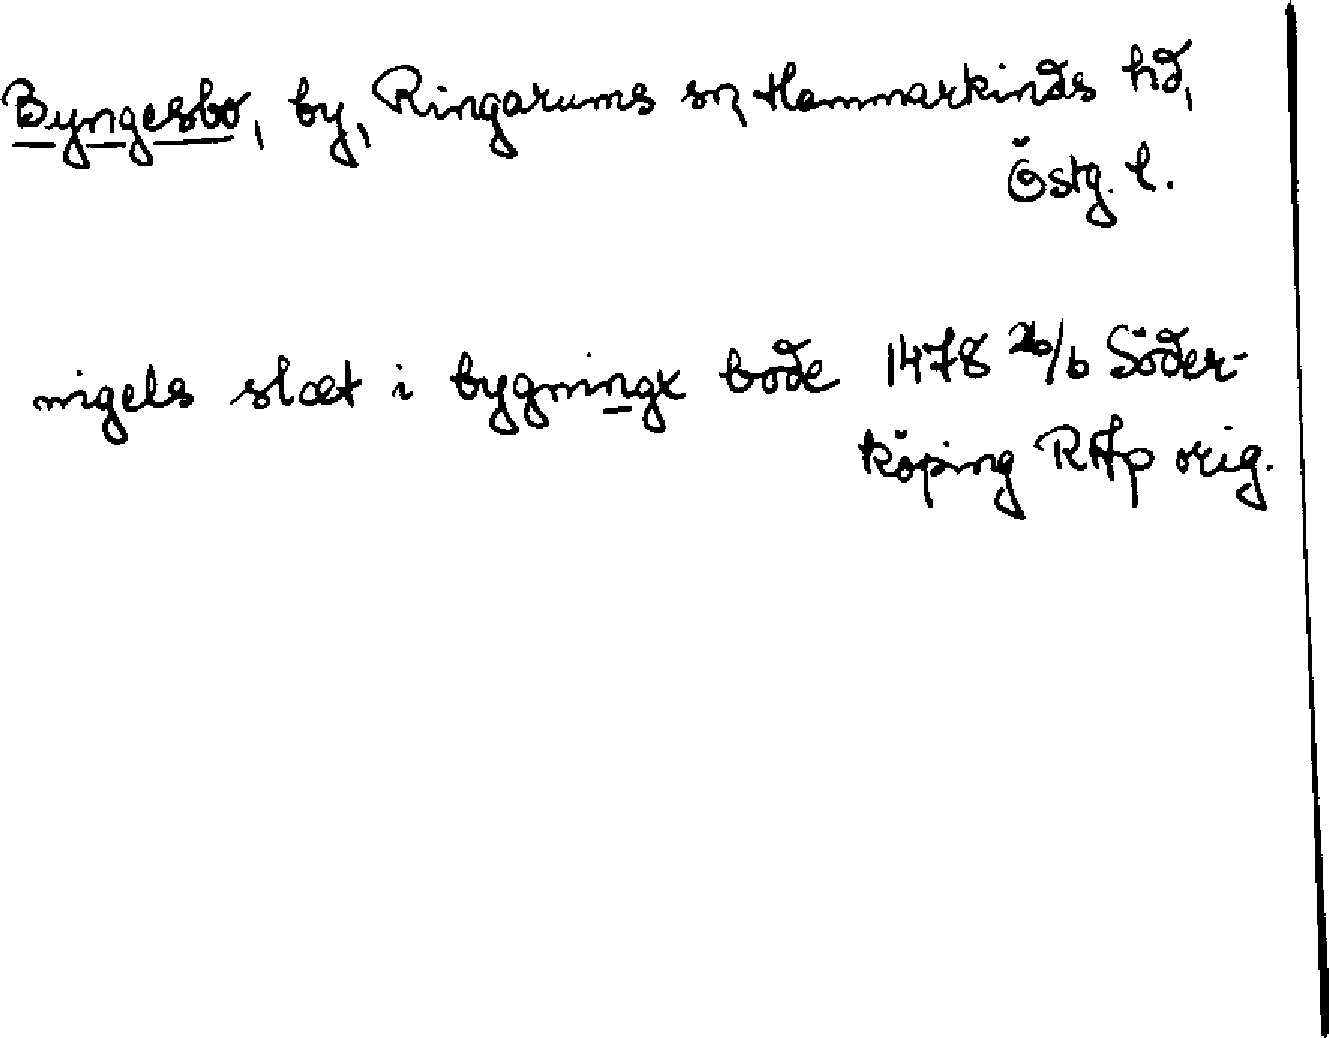 Byngesbo, by, Ringarums sn, Hammarkinds hd,
Östg. l.
nigels slæt i bygningx bode 1478 26/6 Söder-
köping RAp orig.